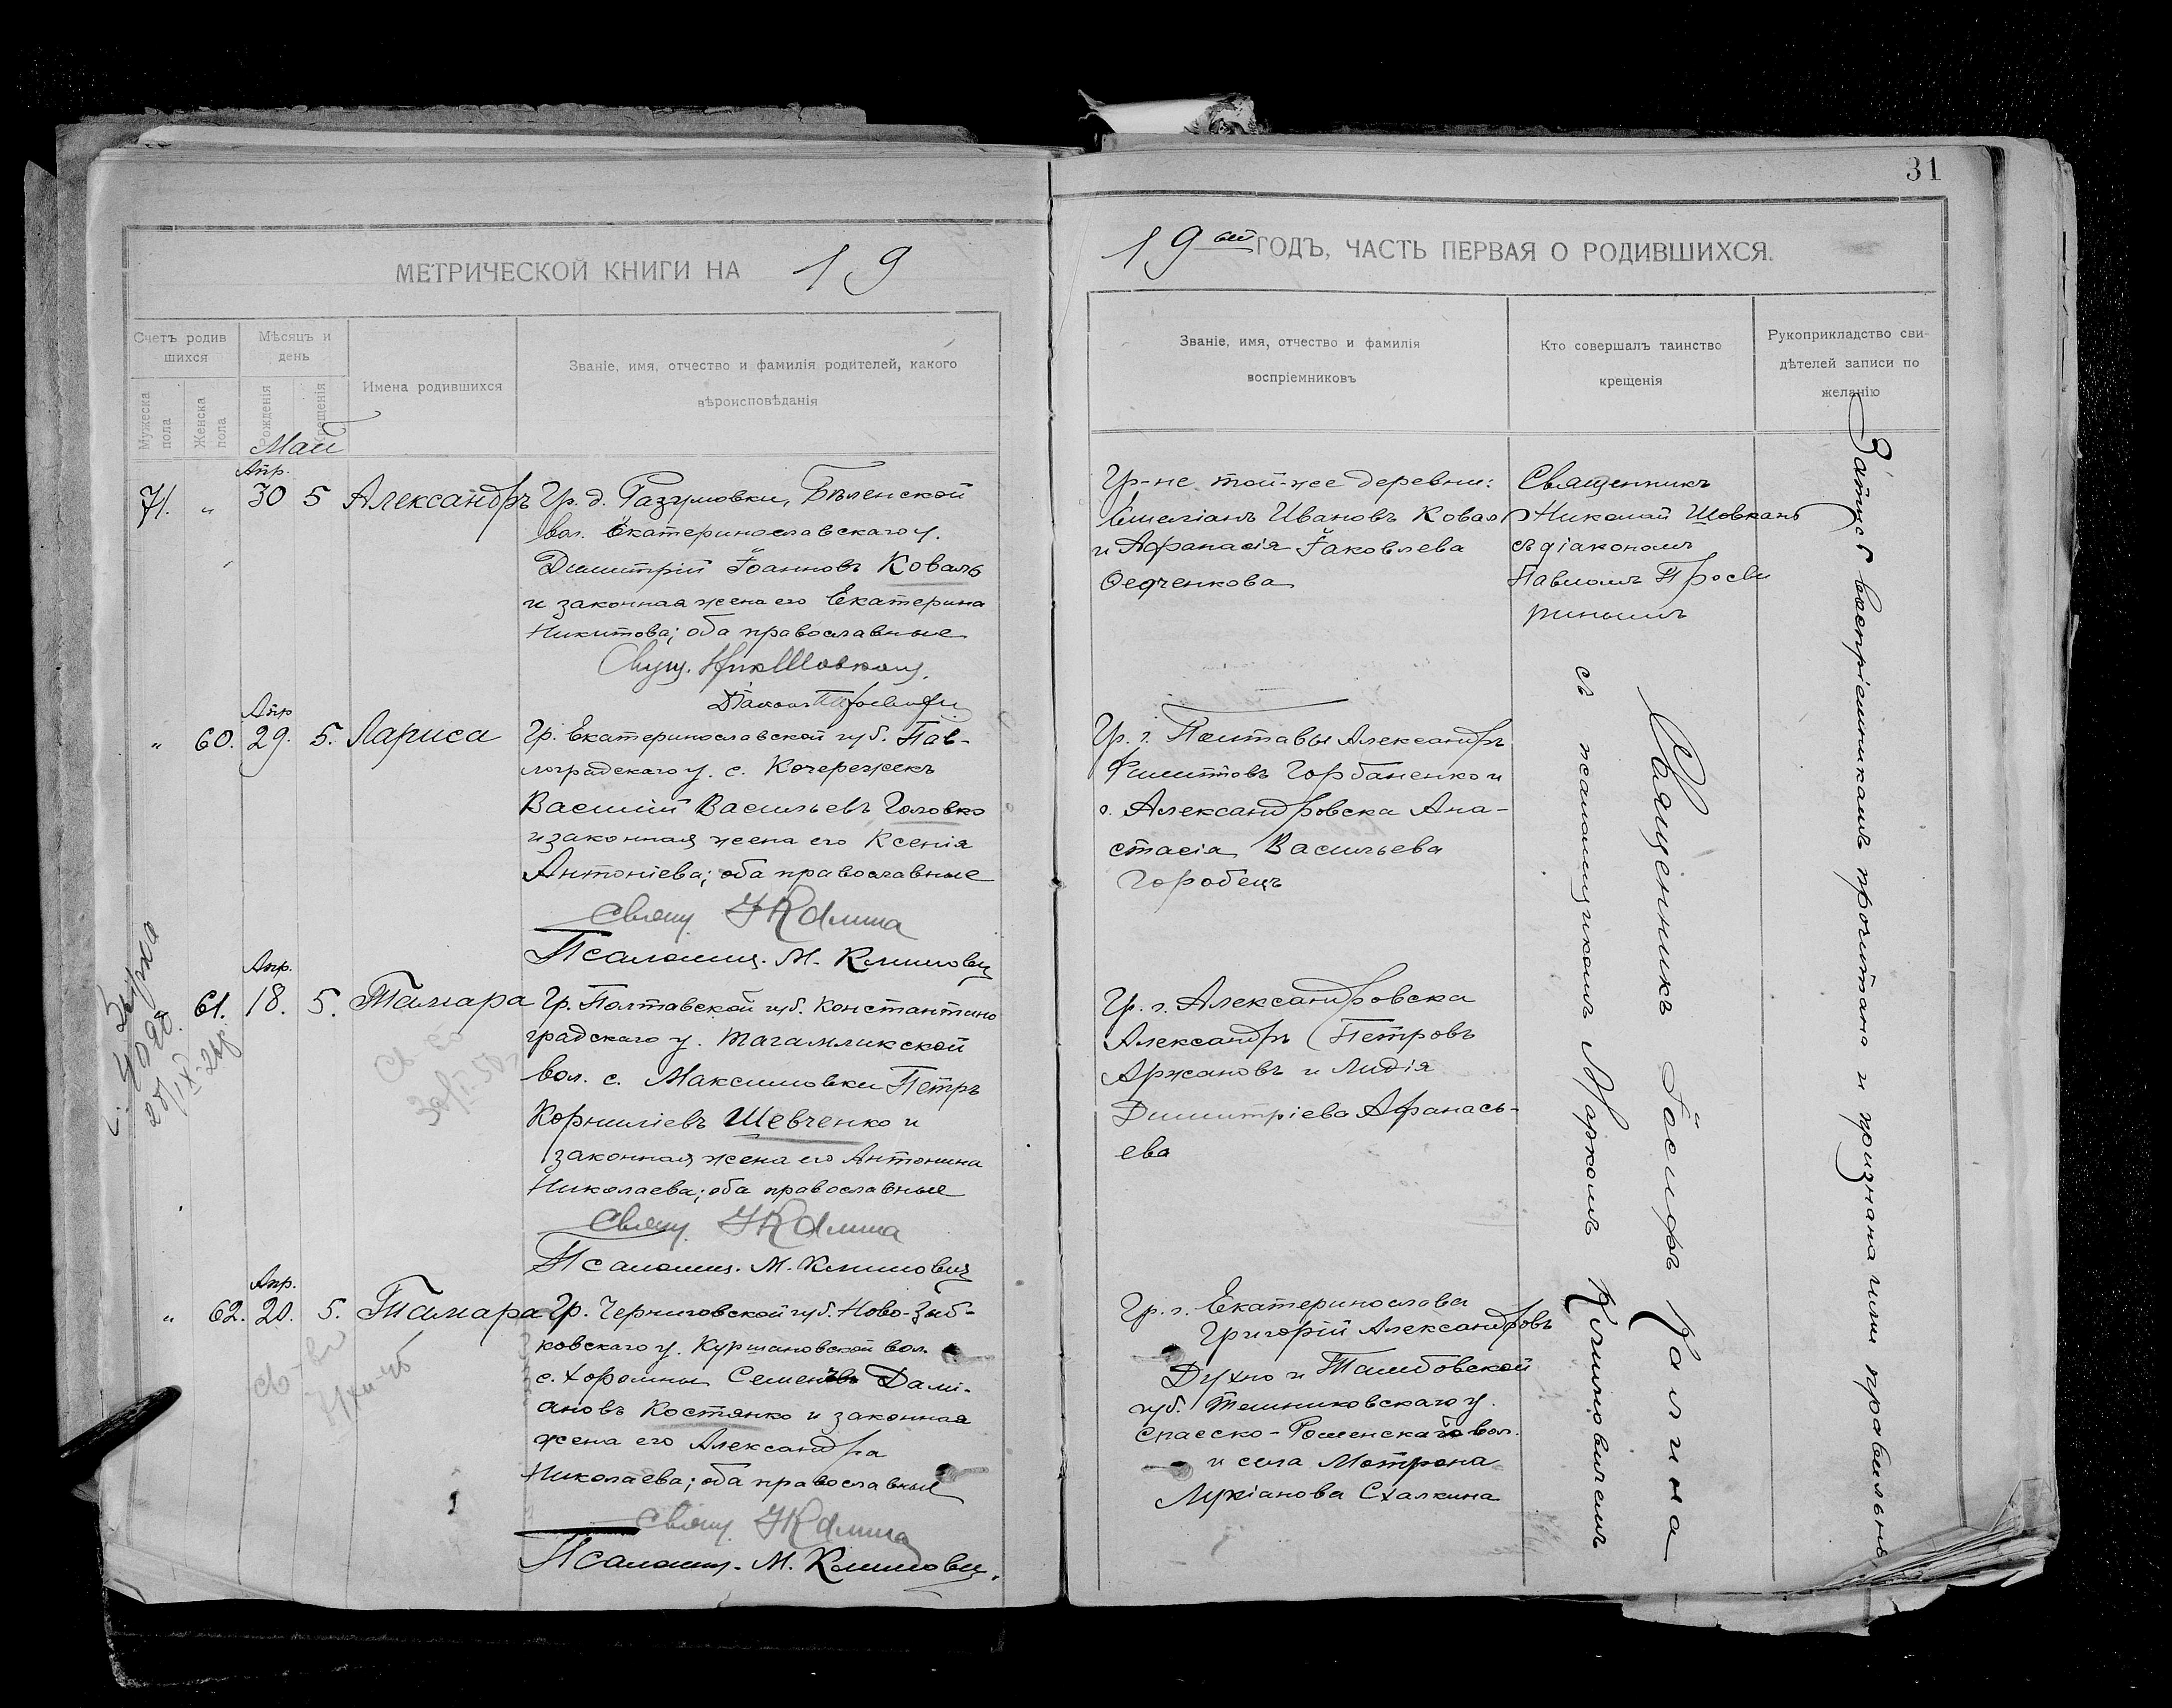 31
МЕТРИЧЕСКОЙ КНИГИ НА 19
19 ГОДЪ, ЧАСТЬ ПЕРВАЯ О РОДИВШИХСЯ.
Счетъ родив
шихся
Мужеска пола
Женска пола
Мѣсяцъ и
день
Рожденія
Крещенія
Имена родившихся
Званіе, имя, отчество и фамилія родителей, какого
вѣроисповѣданія
Званіе, имя, отчество и фамилія
воспріемниковъ
Кто совершалъ таинство
крещенія
Рукоприкладство сви-
дѣтелей записи по
желанію
Май
Апр.
71. " 30 5 Александръ
Гр. д. Разумовки, Бѣленской
вол. Екатеринославскаго у.
Димитрій Іоанновъ Коваль
и законная жена его Екатерина
Никитова; оба православные
Свящ. Ник Шовкань
Гр-не той-же деревни:
Емеліанъ Ивановъ Коваль
и Афанасія Іаковлева
Федченкова
Священникъ
Николай Шовкань
съ діакономъ
Павломъ Просви
ринымъ
Апр
" 60. 29. 5. Лариса
Гр. Екатеринославской губ. Пав-
лоградскаго у. с. Кочережекъ
Василій Васильевъ Головко
и законная жена его Ксенія
Антоніева; оба православные
Свящ. І Калина
Псаломщ. М. Климович
Гр. г. Полтавы Александръ
Горбаненко и
г. Александровска Ана-
стасія Васильева
Горобецъ
Апр.
61. 18. 5. Тамара
Гр. Полтавской губ. Константино
градскаго у. Тагамликской
вол. с. Максимовки Петръ
Корниліевъ Шевченко и
законная жена его Антонина
Николаева; оба православные
Свящ. І Калина
Псаломщ. М. Климович
Гр. г. Александровска
Александръ Петровъ
Аржановъ и Лидія
Димитріева Афанась-
ева
Апр.
" 62. 20. 5. Тамара
Гр. Черниговской губ. Ново-Зыб-
ковскаго у. Куршановской вол.
с. Хоромны Семенъ Дамі-
ановъ Костянко и законная
жена его Александра
Николаева; оба православные
Свящ. І Калина
Псаломщ. М. Климович.
Гр. г. Екатеринослава
Григорій Александровъ
Духно и Тамбовской
губ. Темниковскаго у.
вол.
и села Матрона
Лукіанова Схалкина
Священникъ Іосифъ Калина
съ псаломщикомъ Маркомъ Климовичемъ
воспріемникамъ прочитана и признана ими правильн.